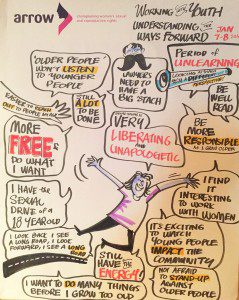 arrow
championing women's sexual
and reproductive rights
WORKING WITH YOUTH
UNDERSTANDING THE
WAYS FORWARD
JAN
7-8
OLDER PEOPLE
DON'T LISTEN
TO YOUNGER
PEOPLE
I ALWAYS
NEED TO HAVE
A BIG STACH
PERIOD of
UNLEARNING
LOOKING AT LIFE
DIFFERENTLY
BE
WELL
READ
EASIER TO REACH
OUT TO PEOPLE
STILL
A LOT
TO BE
DONE
MORE
FREE to
DO WHAT
I WANT
VERY
LIBERATING
AND
UNAPOLOGETIC
BE
MORE
RESPONSIBLE
AS I GROW OLDER
I HAVE the
SEXUAL
DRIVE of A
18 YEAR OLD
I FIND IT
INTERESTING
TO WORK
WITH WOMEN
I LOOK BACK I SEE
A LONG ROAD, I LOOK
FORWARD, I SEE A LONG
ROAD
STILL
HAVE the
ENERGY!
IT'S EXCITING
TO WATCH
YOUNG PEOPLE
IMPACT the
COMMUNITY
I WANT TO DO MANY THINGS
BEFORE I GROW TOO OLD
NOT AFRAID
TO STAND-UP
AGAINST
OLDER PEOPLE